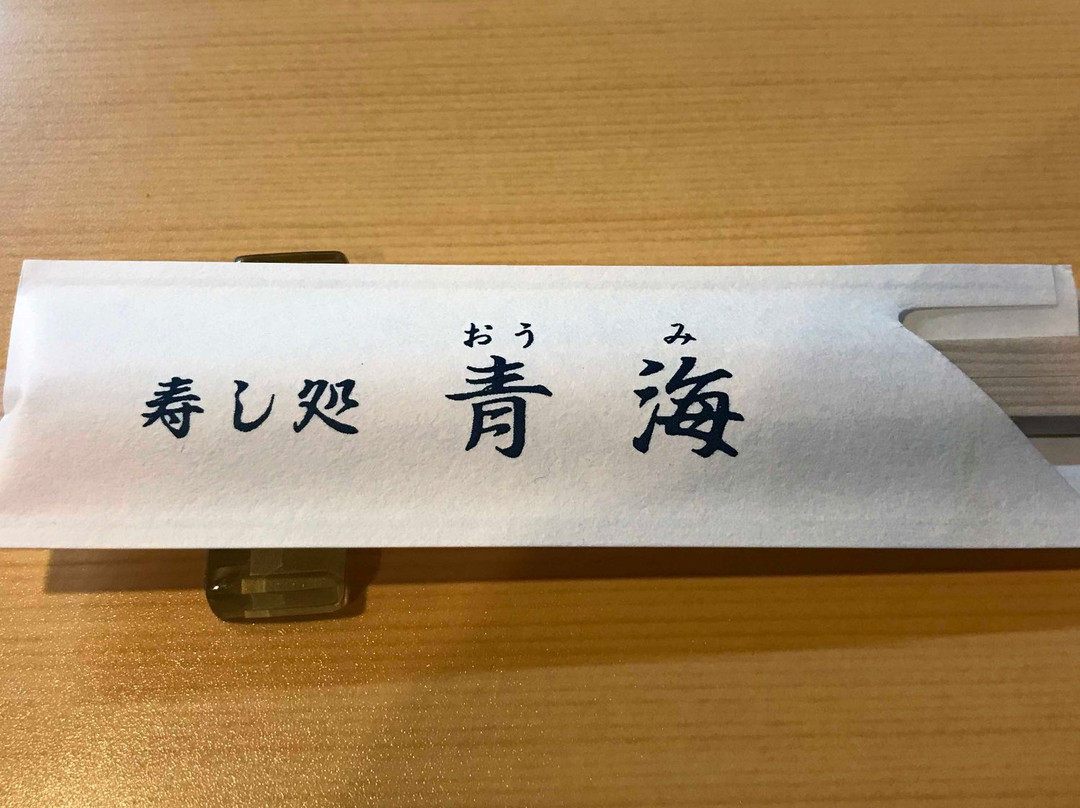 おうみ
寿し処 青海